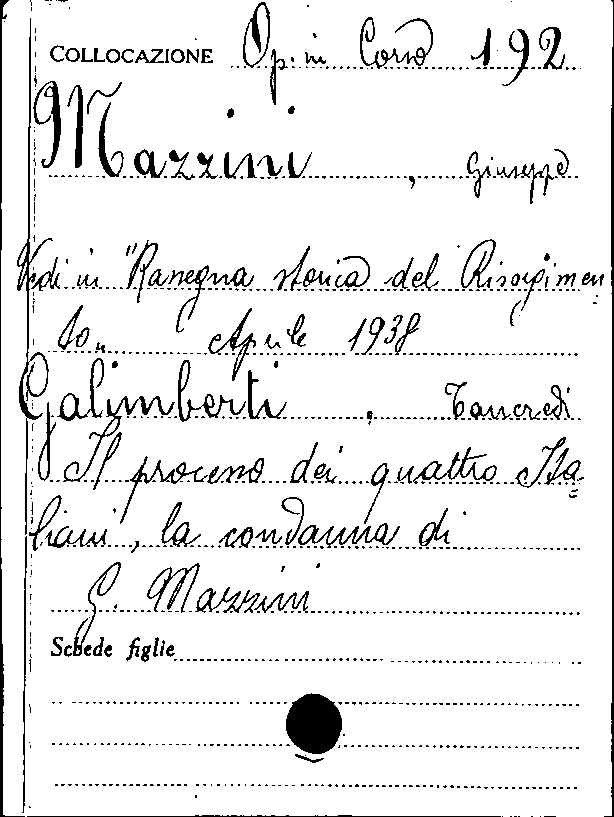 COLLOCAZIONE Op. in Corso 192
Mazzini, Giuseppe
Vedi in "Rassegna storica del Risorgimen
to„ Aprile 1938
Galimberti, Tancredi
Il processo dei quattro Ita=
liani, la condanna di
G. Mazzini
Schede figlie